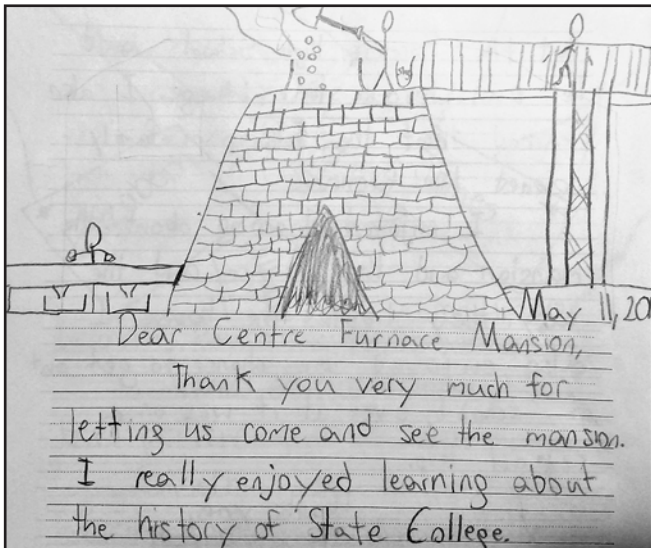 May 11, 20
Dear Centre Furnace Mansion,
Thank you very much for
letting us come and see the mansion.
I really enjoyed learning about
the history of State College.